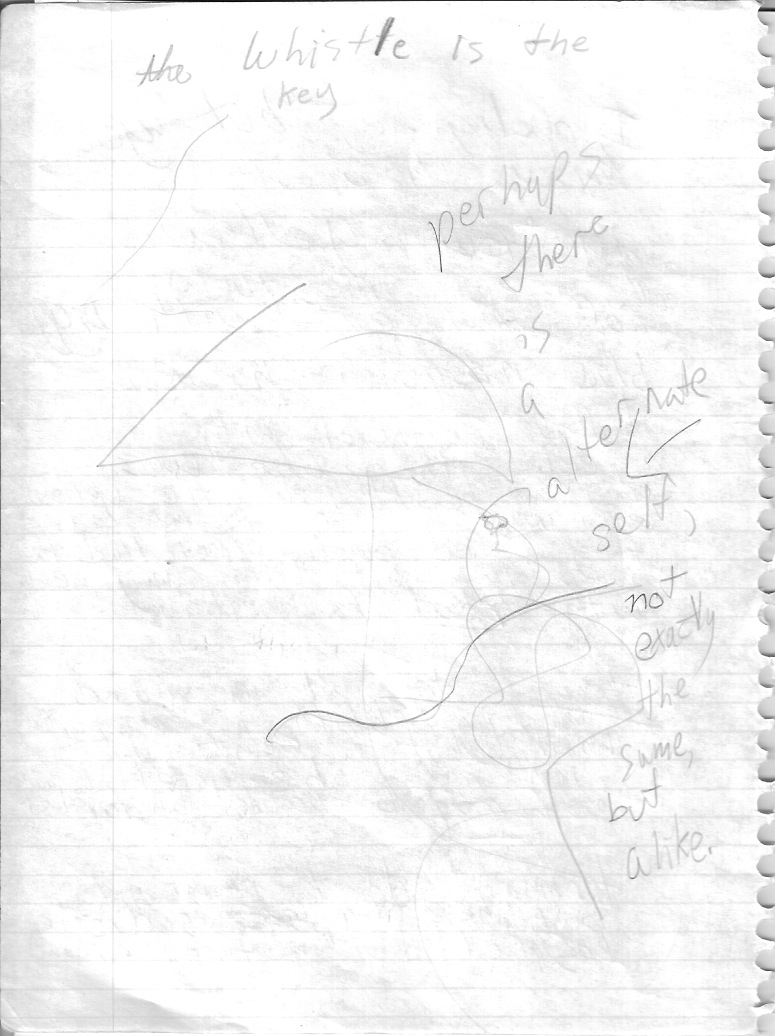 the Whistle is the
key
perhaps
there
is
a
alternate
self,
not
exactly
the
same,
but
alike.